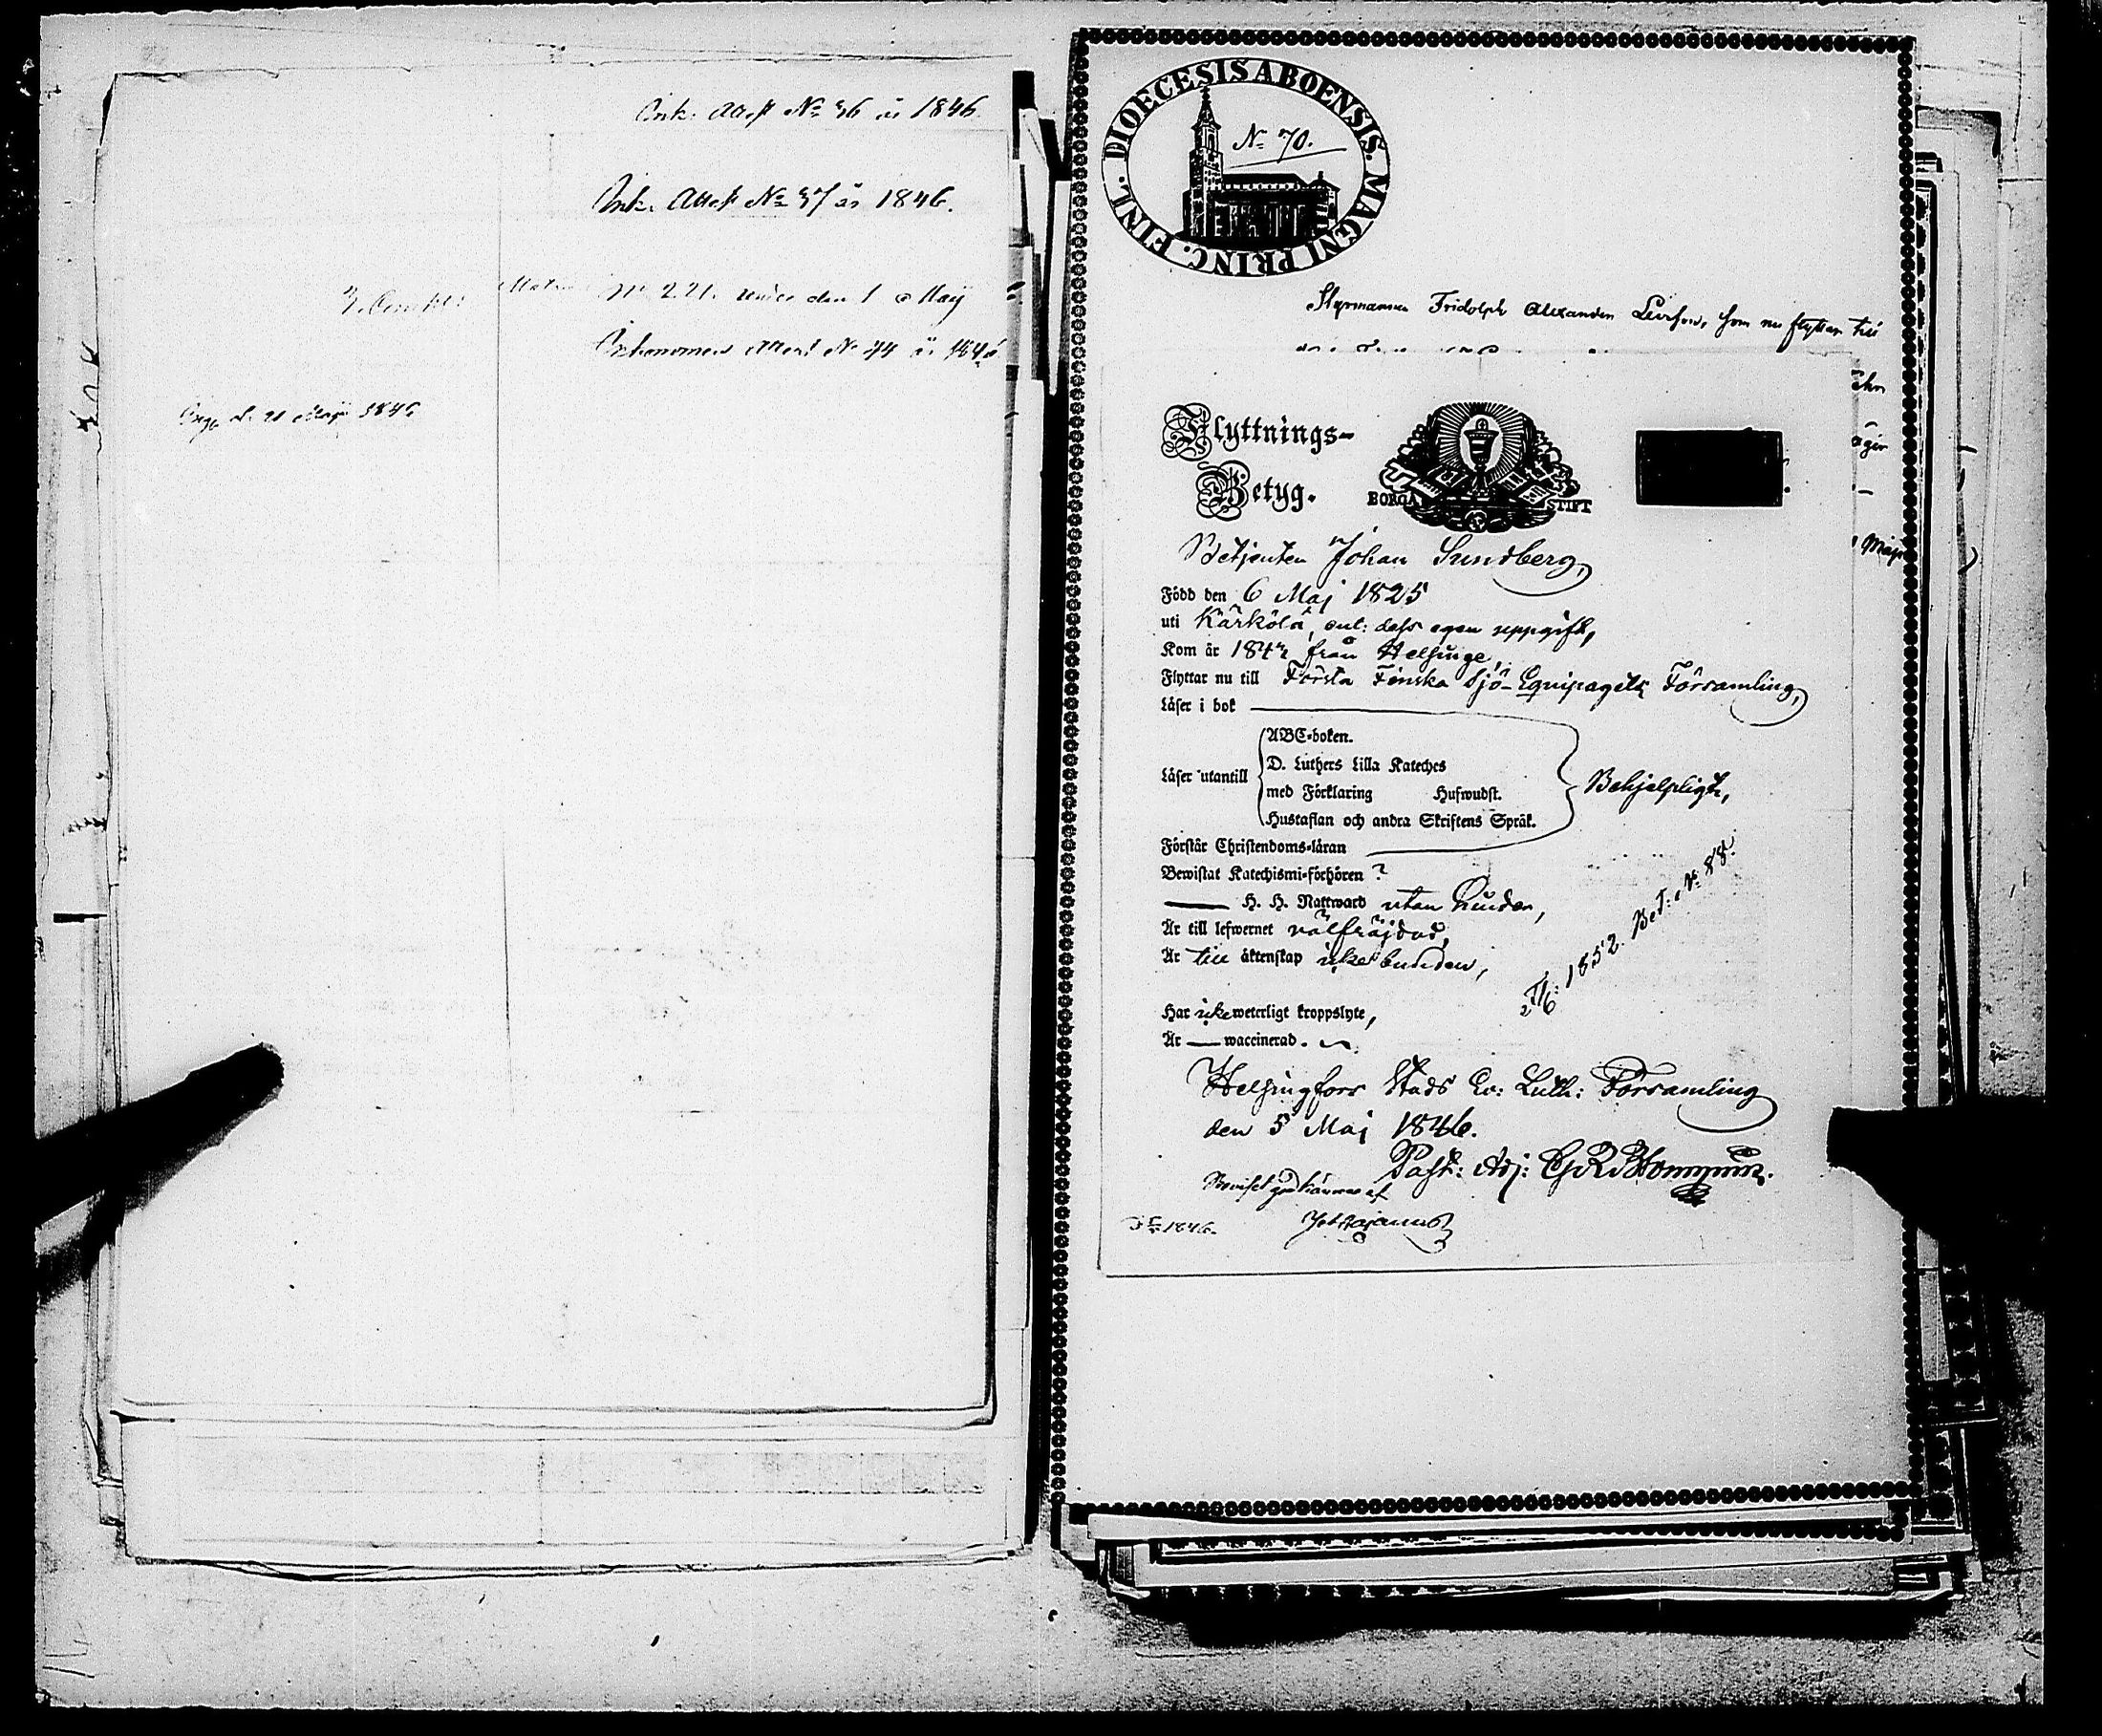 Ink. Attest No 36 år 1846.
Ink. Attest No 37 år 1846.
No 221. den 1 Maij
Inkommen Attest No 44 år 1846
d. 21 Maji 1846
DIOECESIS ABOENSIS. MAGNI PRINC. FINL.
No 70.
Styrmannen Fridolph Alexander som nu flyttar till
Flyttnings-
Betyg.
BORGÅ STIFT
Betjenten Johan Sundberg,
Född den 6 Maj 1825
uti Kärkölä, enl: dess egen uppgift,
Kom år 184 från Helsinge,
Flyttar nu till Första Finska Sjö-Equipagets Församling,
Läser i bok
Läser utantill
ABC-boken.
D. Luthers Lilla Kateches
med Förklaring Hufwudst.
Hustaflan och andra Skriftens Språk.
Behjelpligt,
Förstår Christendoms-läran
Bewistat Katechismi-förhören ?
— H. H. Nattward utan hinder,
Är till lefwernet välfräjdad,
Är till äktenskap icke bunden,
Har icke weterligt kroppslyte,
Är — waccinerad.
1852. Bet: No 88.
Helsingfors Stads Ev: Luth: Församling
den 5 Maj 1846.
Past: Adj:
af
1846.